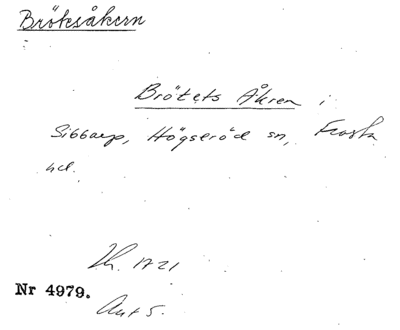 Bröksåkern
Brötets Åkren i
Sibbarp, Högseröd sn, Frosta
hd.
Lh. 1721
Nr 4979.
Akt 5.